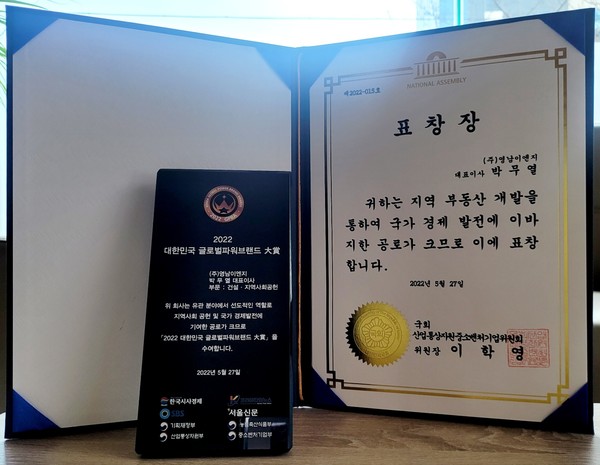 2022
대한민국 글로벌파워브랜드 大賞
(주)영남이엔지
박 무 열 대표이사
부문 : 건설 · 지역사회공헌
위 회사는 유관 분야에서 선도적인 역할로
지역사회 공헌 및 국가 경제발전에
기여한 공로가 크므로
「2022 대한민국 글로벌파워브랜드 大賞」을
수여합니다.
2022년 5월 27일
한국시사경제
SBS
서울신문
기획재정부
농림축산식품부
산업통상자원부
중소벤처기업부
NATIONAL ASSEMBLY
제2022-015호
표 창 장
(주)영남이엔지
대표이사 박 무 열
귀하는 지역 부동산 개발을
통하여 국가 경제 발전에 이바
지한 공로가 크므로 이에 표창
합니다.
2022년 5월 27일
국회
산업통상자원중소벤처기업위원회
위원장 이 학 영